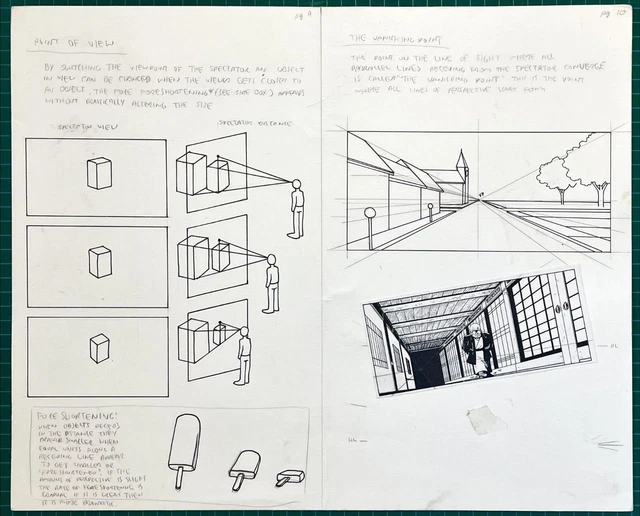 pg 9
POINT OF VIEW
BY SWITCHING THE VIEWPOINT OF THE SPECTATOR AN OBJECT
IN VIEW CAN BE CHANGED WHEN THE VIEWER GETS CLOSER TO
AN OBJECT. THE MORE FORESHORTENING* (SEE SIDE BOX) APPEARS
WITHOUT DRASTICALLY ALTERING THE SIZE
SPECTATOR VIEW
SPECTATOR DISTANCE
FORESHORTENING:
WHEN OBJECTS RECEDE
IN THE DISTANCE THEY
APPEAR SMALLER WHEN
EQUAL UNITS ALONG A
RECEDING LINE APPEAR
TO GET SMALLER OR
"FORESHORTENED". IF THE
AMOUNT OF PERSPECTIVE IS SLIGHT
THE RATE OF FORESHORTENING IS
GRADUAL IF IT IS GREAT THEN
IT IS MORE DRAMATIC.
pg 10
THE VANISHING POINT
THE POINT ON THE LINE OF SIGHT WHERE ALL
PARALLEL LINES RECEDING FROM THE SPECTATOR CONVERGE
IS CALLED "THE VANISHING POINT" THIS IS THE POINT
WHERE ALL LINES OF PERSPECTIVE COME FROM
HL
HL